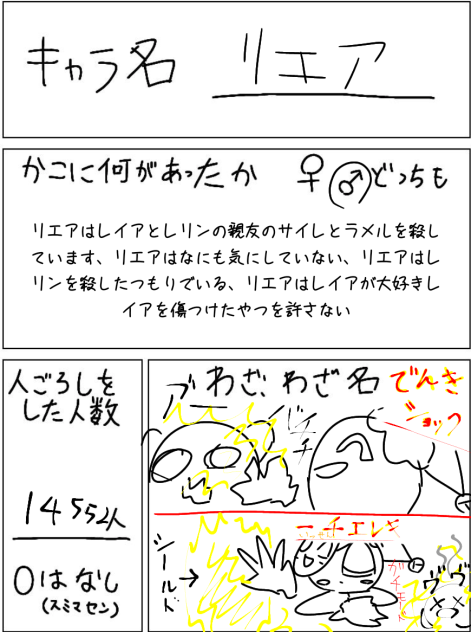 キャラ名 リエア
かこに何があったか ♀♂どっちも
リエアはレイアとレリンの親友のサイレとラメルを殺し
ています、リエアはなにも気にしていない、リエアはレ
リンを殺したつもりでいる、リエアはレイアが大好きレ
イアを傷つけたやつを許さない
人ごろしを
した人数
14552人
0はなし
(スミマセン)
わざ、わざ名 でんき
ショック
ブー
バチ
チ
ニチエレキ
シールド→
ガチモード
ヴヴ